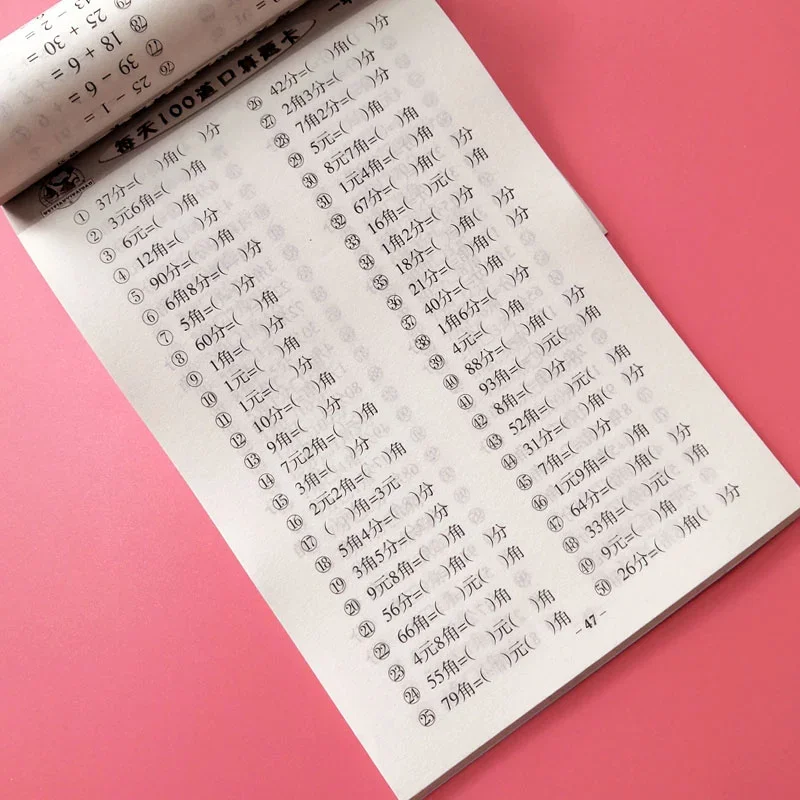 ⑦⑥ 25 − 1 =
⑦⑦ 39 − 6 =
⑦⑧ 18 + 6 =
25 + 30 =
每天100道口算题卡
① 37分=( )角( )分
② 3元6角=( )角
③ 6元=( )角
④ 12角=( )分
⑤ 90分=( )角
⑥ 6角8分=( )分
⑦ 5角=( )分
⑧ 60分=( )角
⑨ 1角=( )分
⑩ 1元=( )角
⑪ 1元=( )分
⑫ 10分=( )角
⑬ 9角=( )分
⑭ 7元2角=( )角
⑮ 3角=( )分
⑯ 2元2角=( )角
⑰ ( )角=3元
⑱ 5角4分=( )分
⑲ 3角5分=( )分
⑳ 9元8角=( )角
㉑ 56分=( )角( )分
㉒ 66角=( )元( )角
㉓ 4元8角=( )角
㉔ 55角=( )元( )角
㉕ 79角=( )元( )角
㉖ 42分=( )角( )分
㉗ 2角3分=( )分
㉘ 7角2分=( )分
㉙ 5元=( )角
㉚ 8元7角=( )角
㉛ 1元4角=( )角
㉜ 67分=( )角( )分
㉝ 16角=( )元( )角
㉞ 1角2分=( )分
㉟ 18分=( )角( )分
㊱ 21分=( )角( )分
㊲ 40分=( )角
㊳ 1角6分=( )分
㊴ 4元=( )角
㊵ 88分=( )角( )分
㊶ 93角=( )元( )角
㊷ 8角=( )分
㊸ 52角=( )元( )角
㊹ 31分=( )角( )分
㊺ 7角=( )分
㊻ 1元9角=( )角
㊼ 64分=( )角( )分
㊽ 33角=( )元( )角
㊾ 9元=( )角
㊿ 26分=( )角( )分
- 47 -